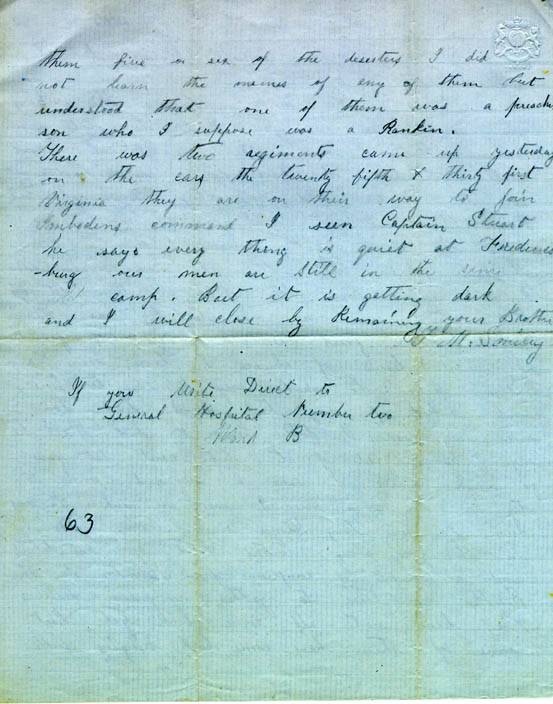 them five or six of the deserters I did
not learn the names of any of them but
understood that one of them was a preach
son who I suppose was a Rankin.
There was two regiments came up yesterday
on the cars the twenty fifth & thirty first
Virginia they are on their way to join
Imbodens command I seen Captain Stuart
he says every thing is quiet at Fredrics
-burg our men are still in the same
camp. But it is getting dark
and I will close by Remaining your Brother
T. M. Smiley
If you Write Direct to
General Hospital Number two
Ward B
63